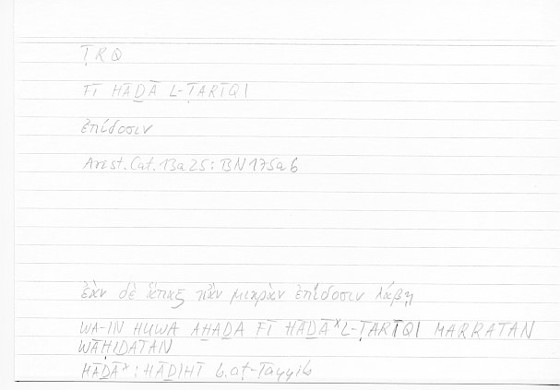 ṬRQ
FĪ HĀḎĀ L-ṬARĪQI
ἐπίδοσιν
Arest. Cat. 13a25: BN 175a6
ἐὰν δὲ ἅπαξ κἂν μικρὰν ἐπίδοσιν λάβῃ
WA-IN HUWA AḪAḎA FĪ HĀḎĀˣ L-ṬARĪQI MARRATAN
WĀḤIDATAN
HĀḎĀˣ: HĀḎIHĪ b. aṭ-Ṭayyib